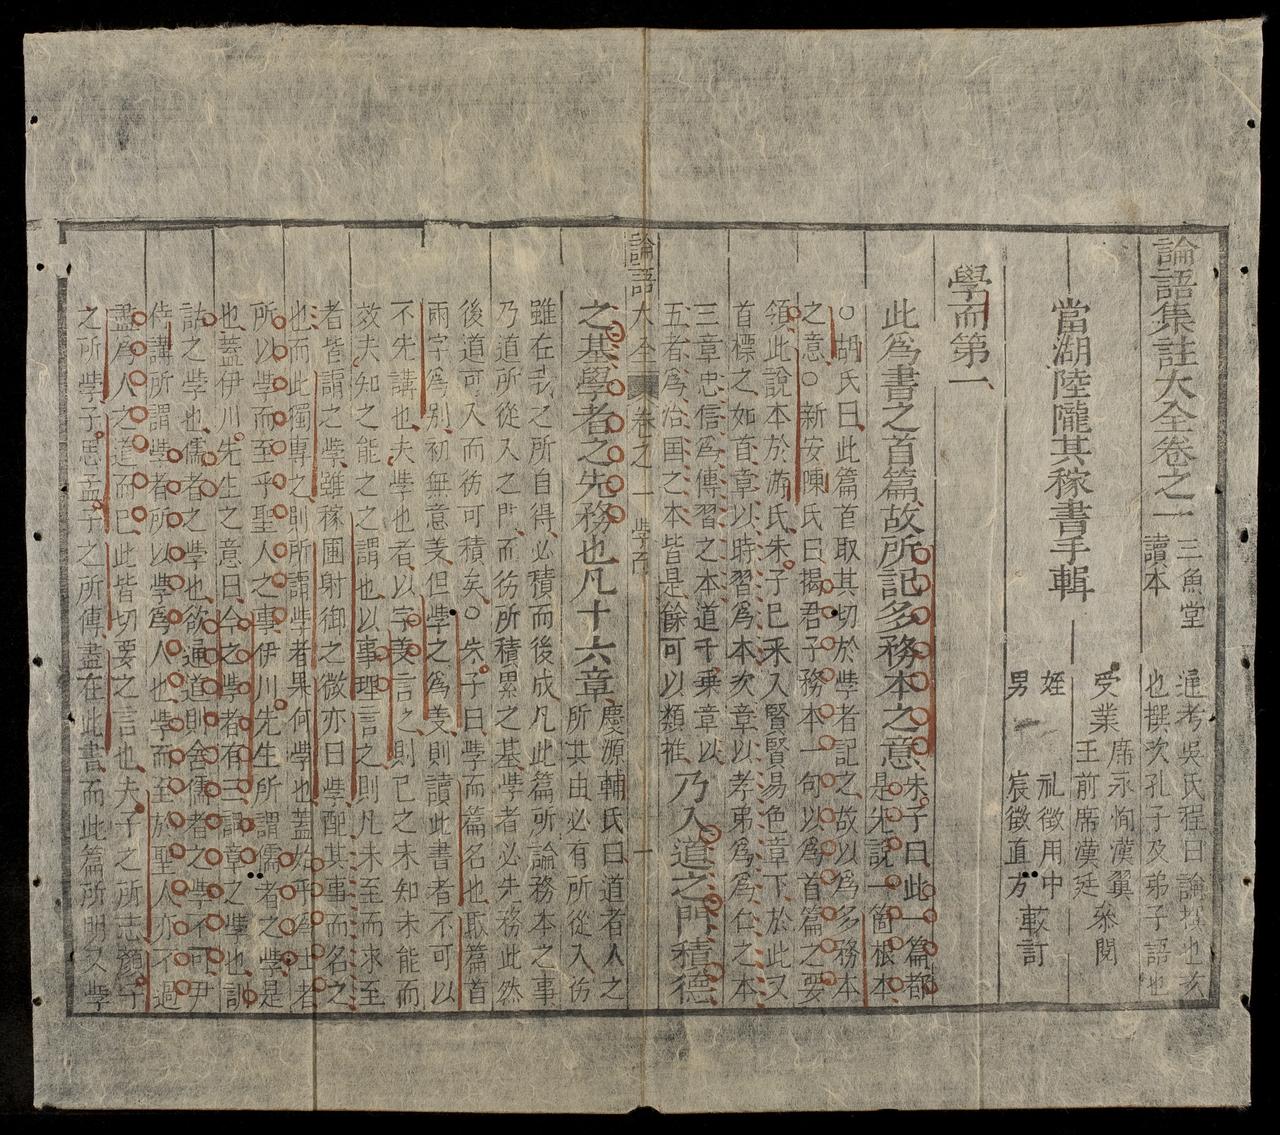 論語集註大全卷之一 三魚堂讀本 通考吳氏程曰論撰也次
也撰次孔子及弟子語也
當湖陸隴其稼書手輯 受業 席永恂漢翼 王前席漢廷 叅閱
姪 礼徵用中 男 宸徵直方 較訂
學而第一
此爲書之首篇故所記多務本之意 朱子曰此一篇都
是先說一箇根本
○胡氏曰此篇首取其切於學者記之故以爲多務本
之意○新安陳氏曰揭君子務本一句以爲首篇之要
領此說本於游氏朱子已采入賢賢易色章下於此又
首標之如首章以時習爲本次章以孝弟爲爲仁之本
三章忠信爲傳習之本道千乘章以
五者爲治国之本皆是餘可以類推 乃入道之門積德
論語大全 卷之一 學而 一
之基學者之先務也凡十六章 慶源輔氏曰道者人之
所共由必有所從入德
雖在我之所自得必積而後成凡此篇所論務本之事
乃道所從入之門而德所積累之基學者必先務此然
後道可入而德可積矣○朱子曰學而篇名也取篇首
兩字爲別初無意義但學之爲義則讀此書者不可以
不先講也夫學也者以字義言之則已之未知未能而
效夫知之能之之謂也以事理言之則凡未至而求至
者皆謂之學雖稼圃射御之微亦曰學配其事而名之
也而此獨專之則所謂學者果何學也蓋始乎爲士者
所以學而至乎聖人之事伊川先生所謂儒者之學是
也蓋伊川先生之意曰今之學者有三詞章之學也訓
詁之學也儒者之學也欲通道則舍儒者之學不可尹
侍講所謂學者所以學爲人也學而至於聖人亦不過
盡爲人之道而已此皆切要之言也夫子之所志顏子
之所學子思孟子之所傳盡在此書而此篇所明又學